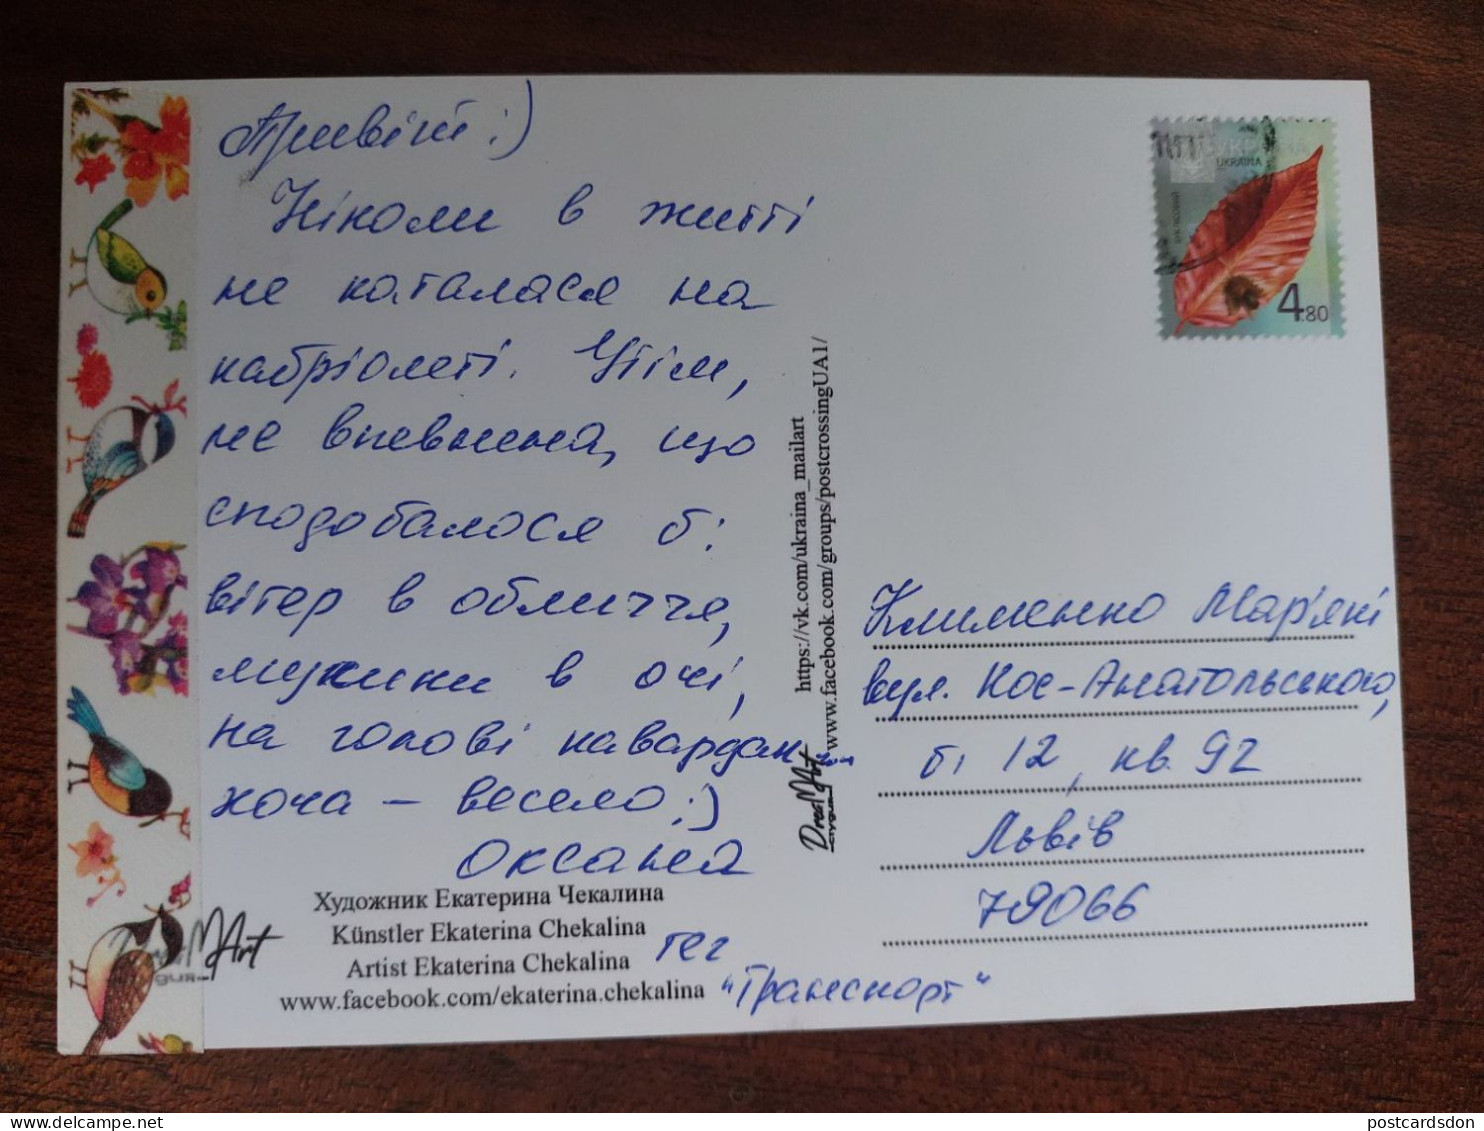 Привіт :)
Ніколи в житті
не каталася на
кабріолеті. Утім,
не впевнена, що
сподобалося б:
вітер в обличчя,
мушки в очі,
на голові кавардак...
хоча – весело :)
Оксана
Художник Екатерина Чекалина
Künstler Ekaterina Chekalina
Artist Ekaterina Chekalina
www.facebook.com/ekaterina.chekalina
тег
"Транспорт"
https://vk.com/ukraina_mailart
www.facebook.com/groups/postcrossingUA1/
DreaMArt
студия
УКРАЇНА
UKRAINA
4.80
Клименко Мар'яні
вул. Кос-Анатольського,
б. 12, кв. 92
Львів
79066
Art
delcampe.net
postcardsdon